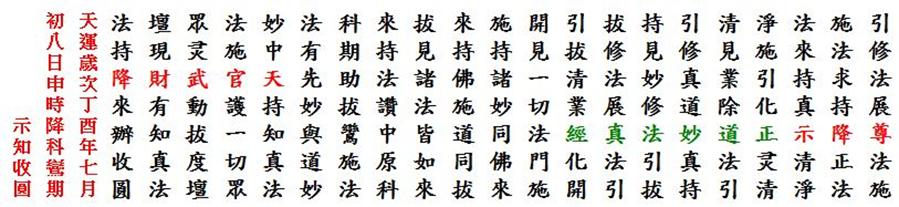 引修法展尊法施
施法求持降正法
法來持真示清淨
淨施引化正灵清
清見業除道法引
引修真道妙真持
持見妙修法引拔
拔修法展真法引
引拔清業經化開
開見一切法門施
施持諸妙同佛來
來持佛施道同拔
拔見諸法皆如來
來持法讚中原科
科期助拔鸞施法
法有先妙與道妙
妙中天持知真法
法施官護一切眾
眾灵武動拔度壇
壇現財有知真法
法持降來辦收圓
天運歲次丁酉年七月
初八日申時降科鸞期
示知收圓